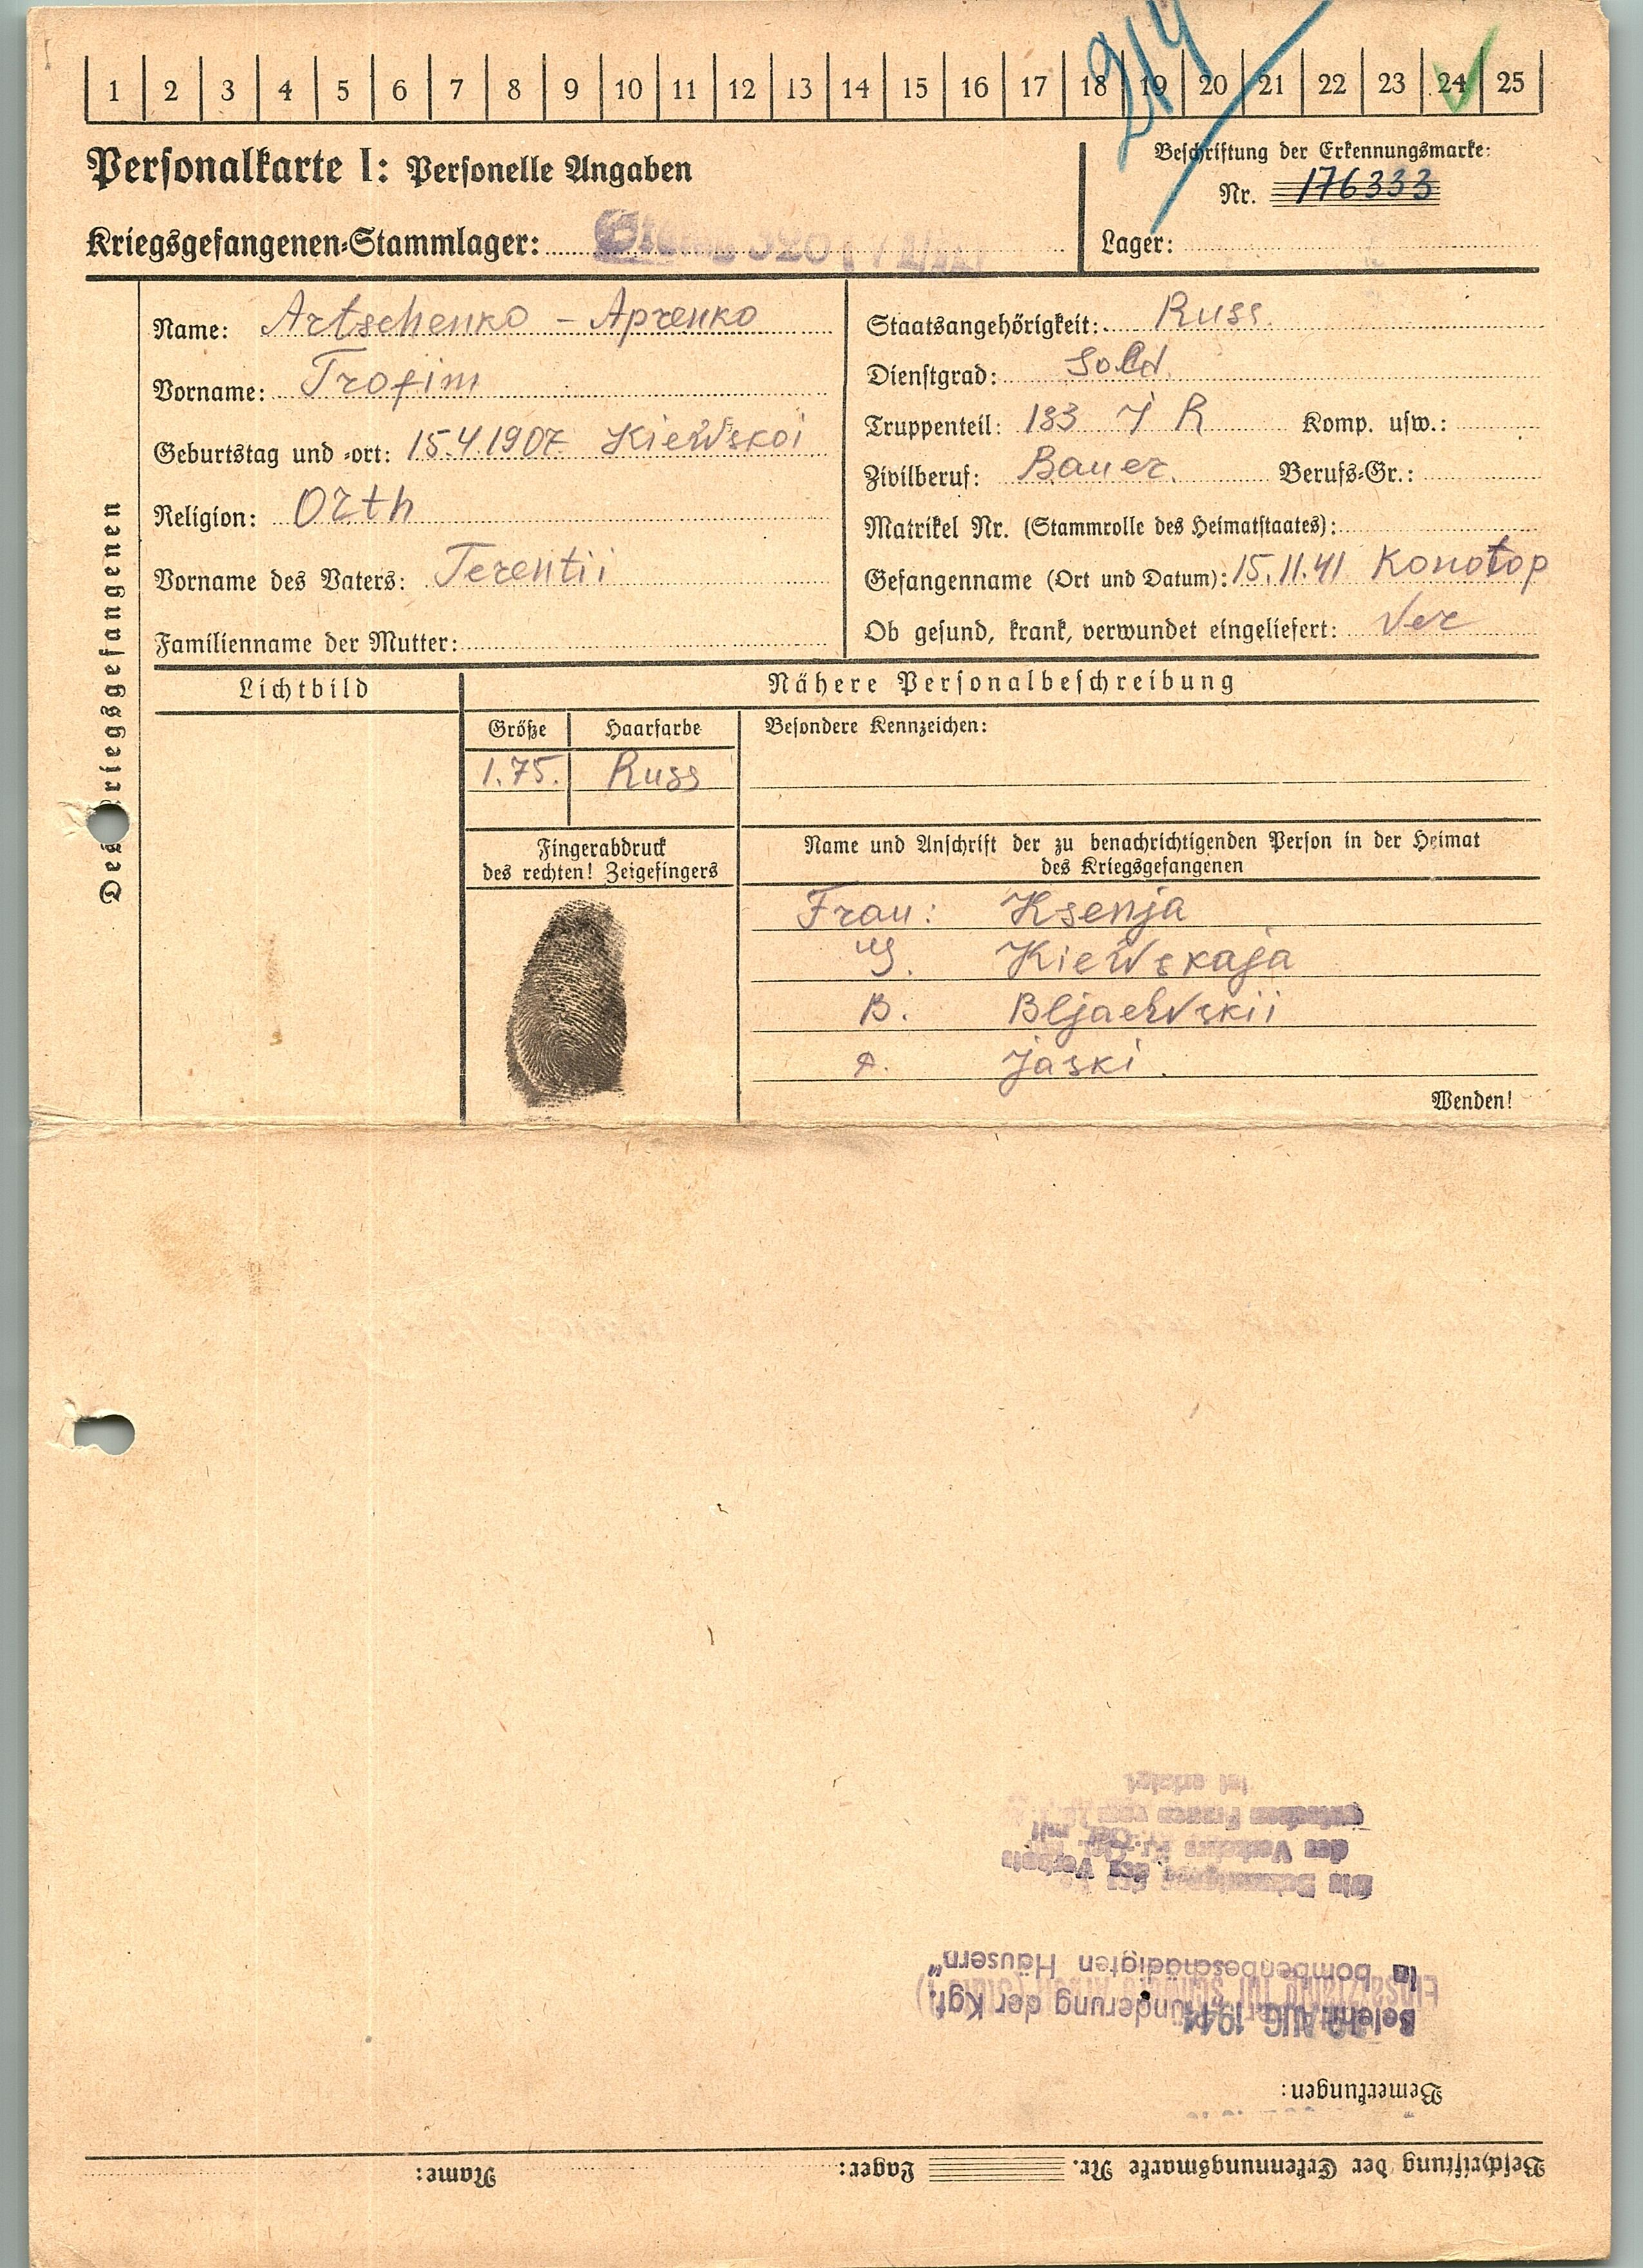 1 2 3 4 5 6 7 8 9 10 11 12 13 14 15 16 17 18 19 20 21 22 23 24 25
214
Personalkarte I: Personelle Angaben
Kriegsgefangenen-Stammlager:
Beschriftung der Erkennungsmarke:
Nr. 176333
Lager:
Des Kriegsgefangenen
Name: Artschenko – Арченко
Vorname: Trofim
Geburtstag und -ort: 15.4.1907 Kiewskoi
Religion: Orth
Vorname des Vaters: Terentii
Familienname der Mutter:
Staatsangehörigkeit: Russ.
Dienstgrad: Sold.
Truppenteil: 133 J R Komp. usw.:
Zivilberuf: Bauer. Berufs-Gr.:
Matrikel Nr. (Stammrolle des Heimatstaates):
Gefangenname (Ort und Datum): 15.11.41 Konotop
Ob gesund, krank, verwundet eingeliefert: Ver
Lichtbild
Nähere Personalbeschreibung
Größe Haarfarbe
1.75. Russ
Besondere Kennzeichen:
Fingerabdruck
des rechten! Zeigefingers
Name und Anschrift der zu benachrichtigenden Person in der Heimat
des Kriegsgefangenen
Frau: Ksenja
G. Kiewskaja
B. Bljaewskii
D. Jaski.
Wenden!
Beschriftung der Erkennungsmarke Nr. Lager: Name:
Bemerkungen:
AUG. 1944
Belehrung der Kgf.
in bombenbeschädigten Häusern"
des Verkehrs
ist erfolgt